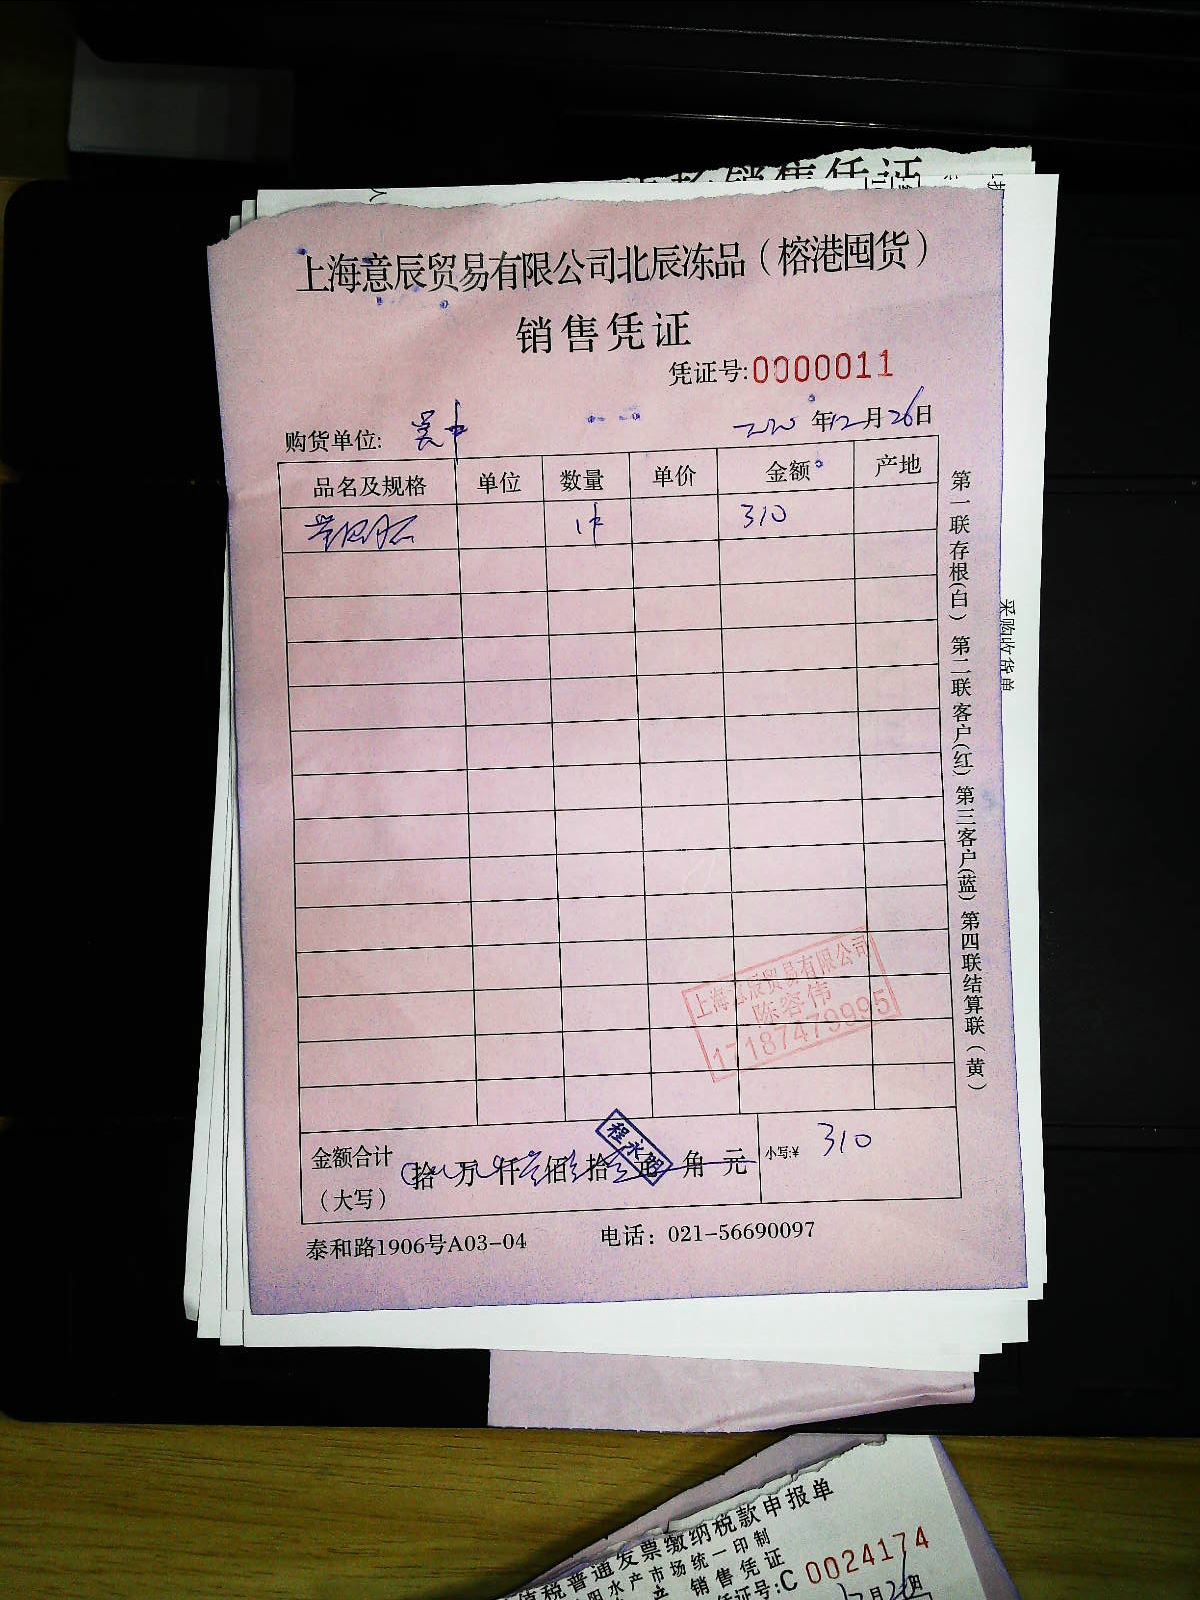 销售凭证
上海意辰贸易有限公司北辰冻品（榕港囤货）
销售凭证
凭证号:0000011
购货单位: 吴中 2020年12月26日
品名及规格 单位 数量 单价 金额 产地
1件 310
第一联存根(白) 第二联客户(红) 第三客户(蓝) 第四联结算联(黄)
采购收货单
上海意辰贸易有限公司
陈容伟
17187479995
程永
金额合计 拾 万 仟 佰 拾 元 角 元 小写:¥ 310
（大写）
泰和路1906号A03-04 电话：021-56690097
值税普通发票缴纳税款申报单
阳水产市场统一印制
产 销售凭证
证号:C 0024174
12月26日